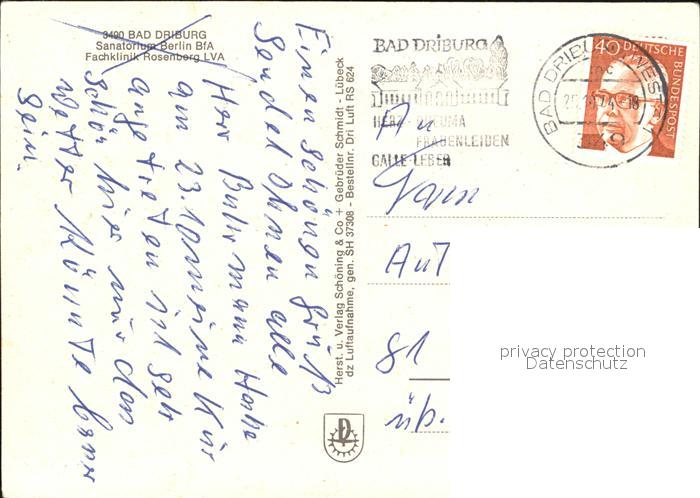 3490 BAD DRIBURG
Sanatorium Berlin BfA
Fachklinik Rosenberg LVA
Einen schönen Gruß
sendet Ihnen alle
Herr Buhrmann Habe
am 23.10 meine Kur
angetreten ist sehr
schön hier nur das
Wetter könnte besser
sein.
Herst. u. Verlag Schöning & Co + Gebrüder Schmidt - Lübeck
dz Luftaufnahme, gen. SH 37308 - Bestellnr. Dri Luft RS 624
BAD DRIBURG
HERZ RHEUMA
FRAUENLEIDEN
GALLE-LEBER
BAD DRIBURG WESTF
40 DEUTSCHE BUNDESPOST
An
Fam
Aut
81
üb.
privacy protection
Datenschutz